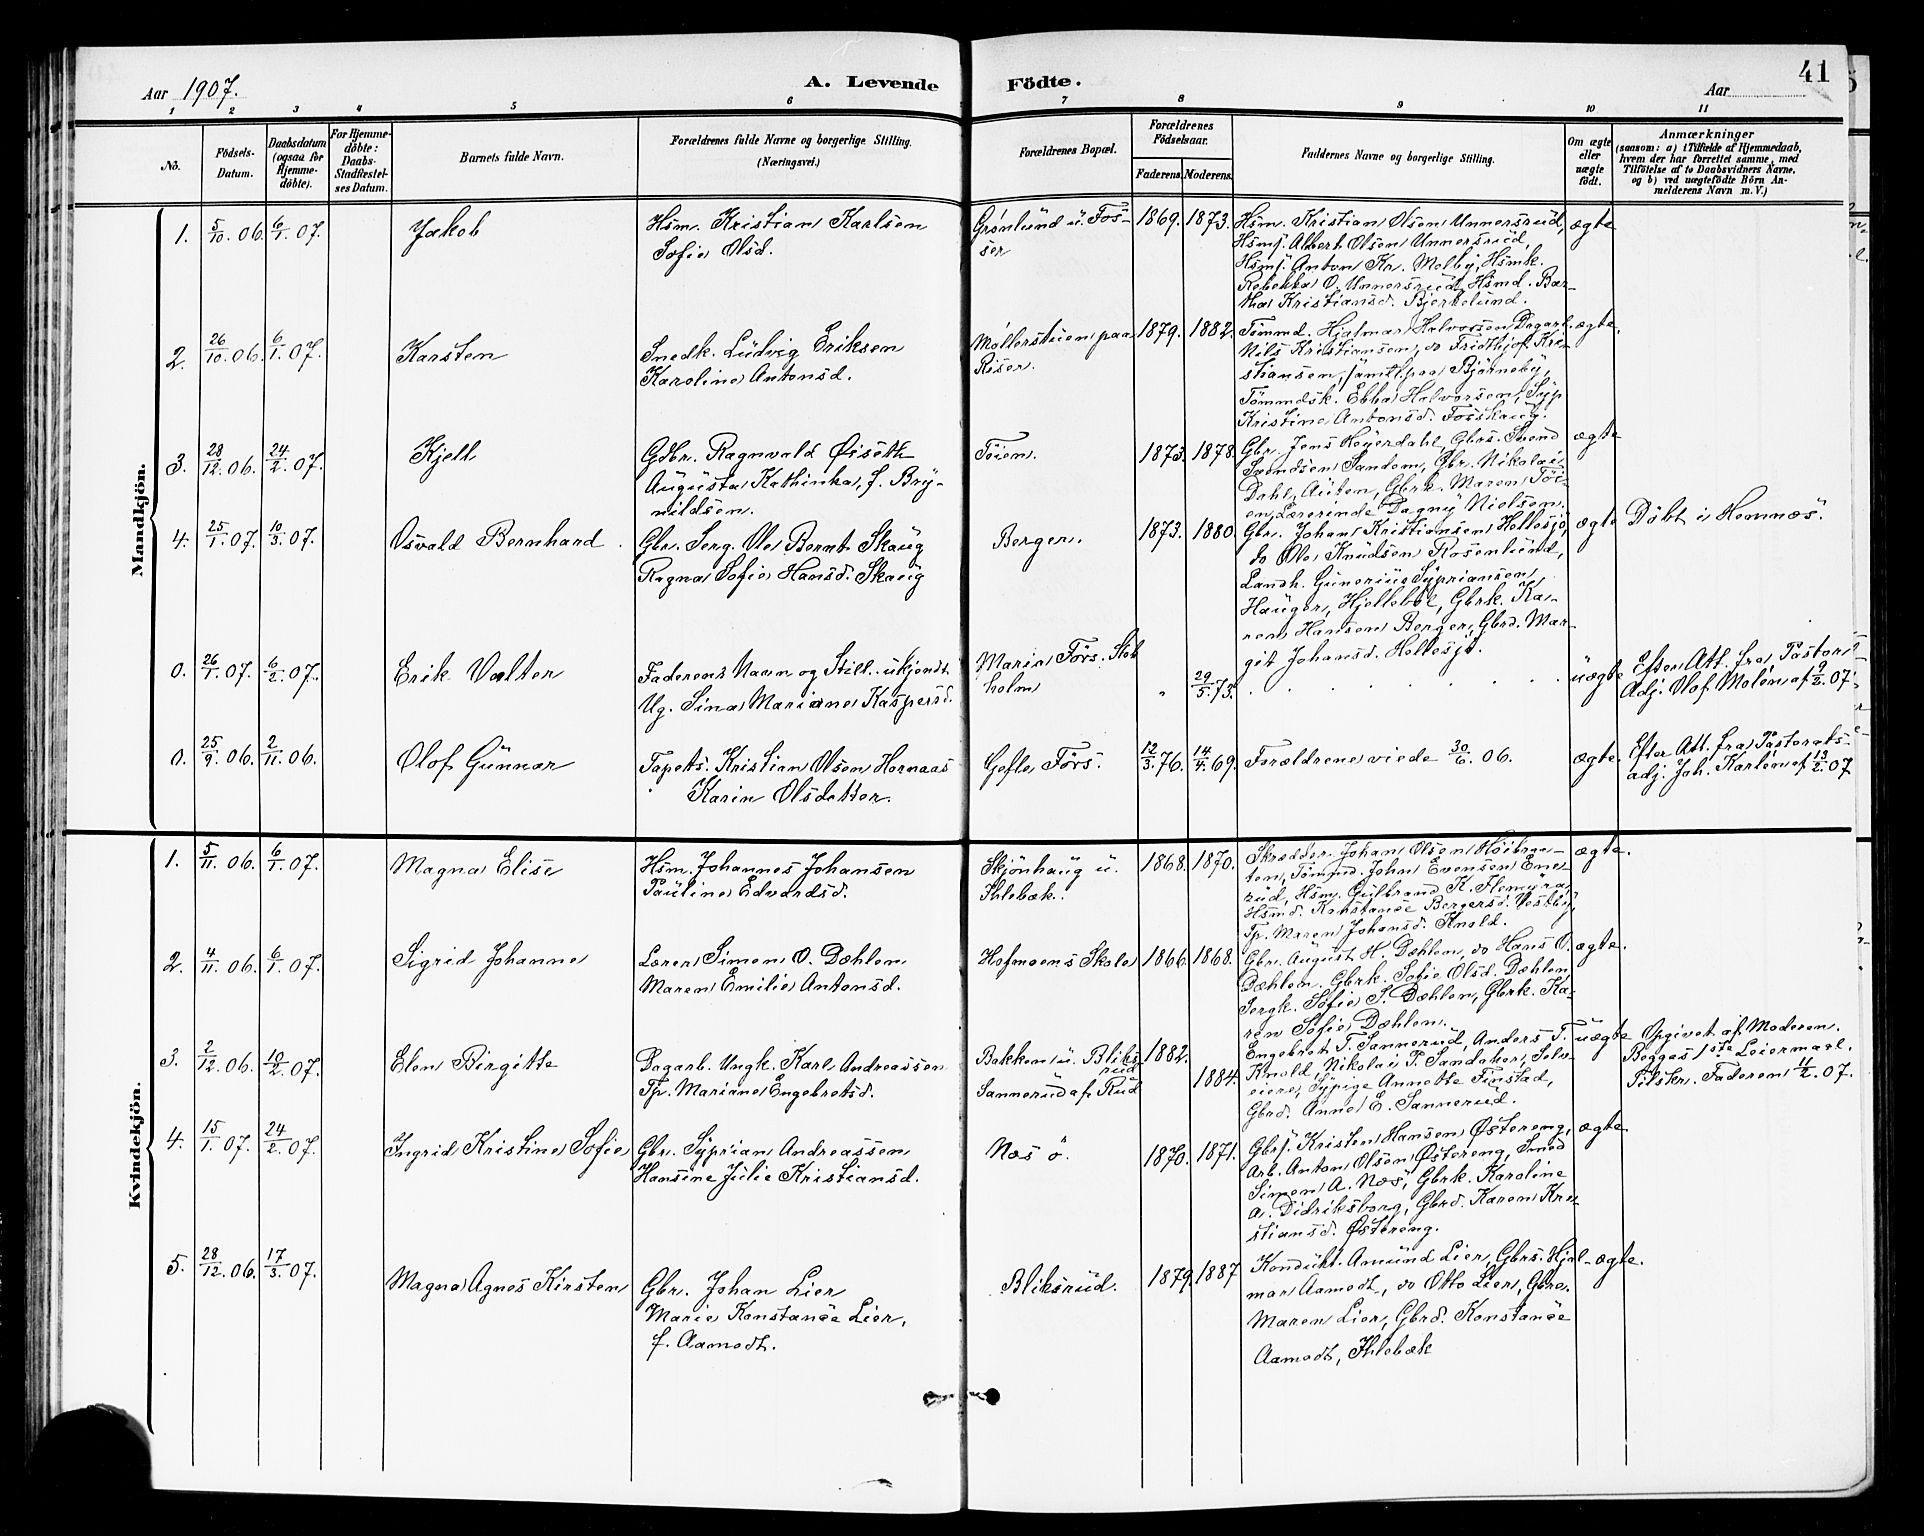 Aar 1907.
A. Levende
Födte.
41
Aar
1 2 3 4 5 6 7 8 9 10 11
No.
Födsels-
Datum.
Daabsdatum
(ogsaa for
Hjemme-
döbte).
For Hjemme-
döbte:
Daabs-
Stadfæstel-
ses Datum.
Barnets fulde Navn.
Forældrenes fulde Navne og borgerlige Stilling.
(Næringsvei.)
Forældrenes Bopæl.
Forældrenes
Födselsaar.
Faderens. Moderens.
Faddernes Navne og borgerlige Stilling.
Om ægte
eller
uægte
födt.
Anmærkninger
(saasom: a) i Tilfælde af Hjemmedaab,
hvem der har forrettet samme, med
Tilföielse af to Daabsvidners Navne,
og b) ved uægtefödte Börn An-
melderens Navn m. V.)
Mandkjön.
1. 5/10. 06. 6/1. 07. Jakob
Hsm. Kristian Karlsen
Sofie Olsd.
Grønlund u. Fos-
ser
1869. 1873.
Hsm. Kristian Olsen Unnersrud,
Hsmf. Albert Olsen Unnersrud,
Hsmf. Anton Kr. Melby, Hsmk.
Rebekka O. Unnersrud, Hsmd. Bær-
tha Kristiansd. Bjerkelund.
ægte
2. 26/10. 06. 6/1. 07. Karsten
Snedk. Ludvig Eriksen
Karoline Antonsd.
Møllerstuen paa
Riser.
1879. 1882.
Tømmd. Hjalmar Halvorsen, Dagarb.
Nils Kristiansen, do Fridthjof Kri-
stiansen, samtl. paa Bjørneby,
Tømmdsk. Ebba Halvorsen, Syp
Kristine Antonsd. Fosshaug.
ægte.
3. 28/12. 06. 24/2. 07. Kjell
Gdbr. Ragnvald Øiseth
Augusta Kathinka, f. Bry-
nildsen.
Töien.
1873. 1878.
Gbr. Jens Heyerdahl, Gbrs. Svend
Svendsen Sandem, Gbr. Nikolai
Dahl, Auten, Gbrk. Maren Töi-
en, Lærerinde Dagny Nielsen.
ægte
4. 25/1. 07. 10/3. 07. Osvald Bernhard.
Gbr. Serg. Ole Bernt Skaug
Ragna Sofie Hansd. Skaug
Berger.
1873. 1880.
Gbr. Johan Kristiansen Hellesjö,
do Ole Knudsen Rosenlund,
Landh. Gunerius Sypriansen
Hauger, Hjellebøl, Gbrk. Ka-
ren Hansen Berger, Gbrd. Mar-
git Johansd. Hellesjö.
ægte
Döbt i Hemnæs.
0. 26/1. 07. 6/2. 07. Erik Valter
Faderens Navn og Still. ukjendt
Ug. Sina Mariane Kaspersd.
Maria Förs. Stok
holm
" 29/5. 73.
uægte
Efter Att. fra Pastor
Adj. Olof Molén af 9/2. 07.
0. 25/9. 06. 2/11. 06. Olof Gunnar
Tapets. Kristian Olsen Hornaas
Karin Olsdotter.
Gefle Förs.
12/3. 76. 14/4. 69.
Forældrene viede 30/6. 06.
ægte.
Efter Att. fra Pastorats-
adj. Joh. Karlén af 13/2. 07
Kvindekjön.
1. 5/11. 06. 6/1. 07. Magna Elise
Hsm. Johannes Johansen
Pauline Edvardsd.
Skjönhaug u.
Ihlebæk.
1868. 1870.
Skrædder Johan Olsen Höibraa-
ten, Tømmd. John Evensen Ene-
rud, Hsmf. Gulbrand K. Flemyra,
Hsmd. Konstanse Bergersd. Vestby,
Tp. Maren Johansd. Knold.
ægte.
2. 4/11. 06. 6/1. 07. Sigrid Johanne
Lærer Simen O. Dæhlen
Maren Emilie Antonsd.
Hofmoens Skole
1866. 1868.
Gbr. August H. Dæhlen, do Hans O.
Dæhlen. Gbrk. Sofie Olsd. Dæhlen
Sergk. Sofie S. Dæhlen, Gbrk. Ka-
ren Sofie Dæhlen.
ægte.
3. 2/12. 06. 10/2. 07. Elen Birgitte
Dagarb. Ungk. Karl Andreassen
Tp. Mariane Engebretsd.
Bakken u. Bliks-
rud
Sannerud af Rud
1882.
1884.
Engebret T. Sannerud, Anders T.
Knold, Nikolai P. Sandaker, Selv-
eiere, Sypige Annette Finstad,
Gbrd. Anne E. Sannerud.
uægte
Opgivet af Moderen.
Begges 1ste Leiermaal.
Tilskr. Faderen 11/2. 07.
4. 15/1. 07. 24/2. 07. Ingrid Kristine Sofie
Gbr. Syprian Andreassen
Hansine Julie Kristiansd.
Næs ö.
1870. 1871.
Gbrf. Kristen Hansen Østereng,
Arb. Anton Olsen Østereng, Smed
Simen A. Næs, Gbrk. Karoline
A. Didriksborg, Gbrd. Karen Kri-
stiansd. Østereng.
ægte
5. 28/12. 06. 17/3. 07. Magna Agnes Kirsten
Gbr. Johan Lier
Marie Konstanse Lier,
f. Aamodt.
Bliksrud.
1879. 1887
Kondukt. Amund Lier, Gbrs. Hjal-
mar Aamodt, do Otto Lier, Gbre.
Maren Lier, Gbrd. Konstanse
Aamodt, Ihlebæk
ægte.